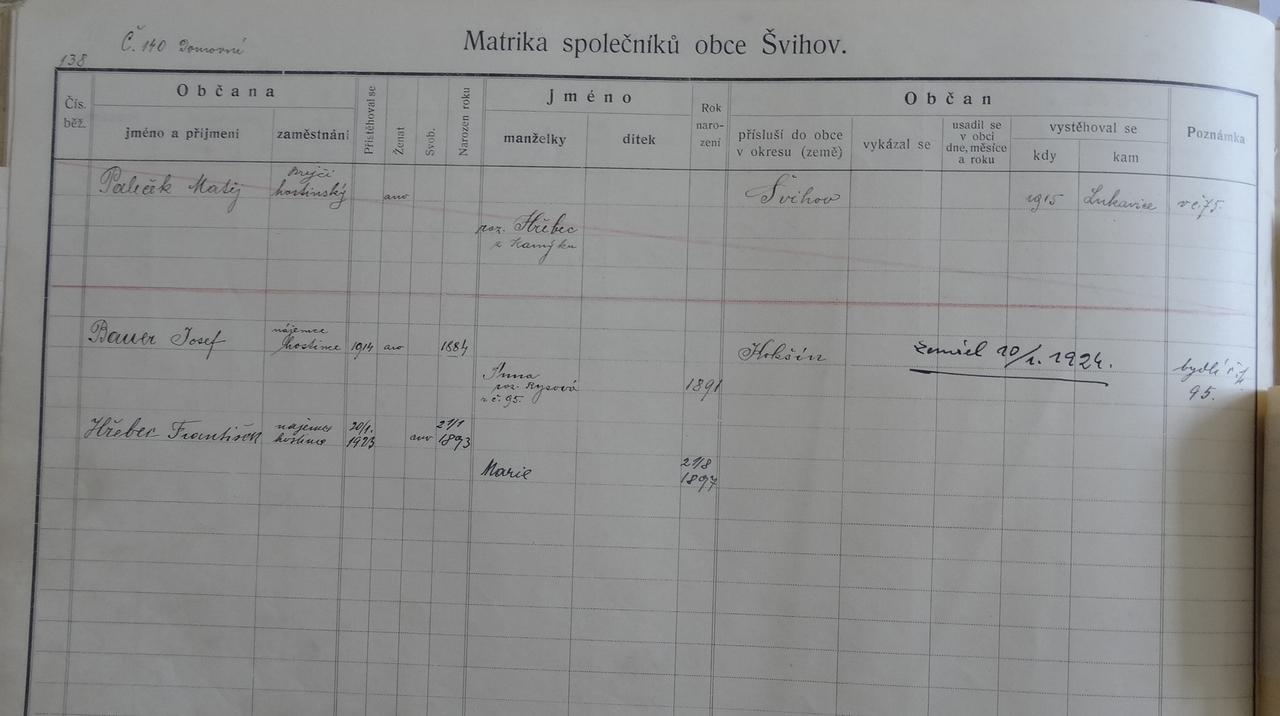 Č. 140 Domovní
Matrika společníků obce Švihov.
138
Čís. běž.
Občana
jméno a přijmení
zaměstnání
Přistěhoval se
Ženat
Svob.
Narozen roku
Jméno
manželky
dítek
Rok naro- zení
Občan
přísluší do obce v okresu (země)
vykázal se
usadil se v obci dne, měsíce a roku
vystěhoval se
kdy
kam
Poznámka
Paleček Matěj
hostinský
ano
Švihov
1915
Lukavice
v č 75.
roz. Hřebec
z Kamýku
Bauer Josef
nájemce
hostince
1914
ano
1884
zemřel 20/1. 1924.
bydlí
95.
Anna
roz. Rysová
z č. 95.
1891
Hřebec František
nájemce
hostince
20/1.
1923
ano
21/1
1893
Marie
21/8
1897